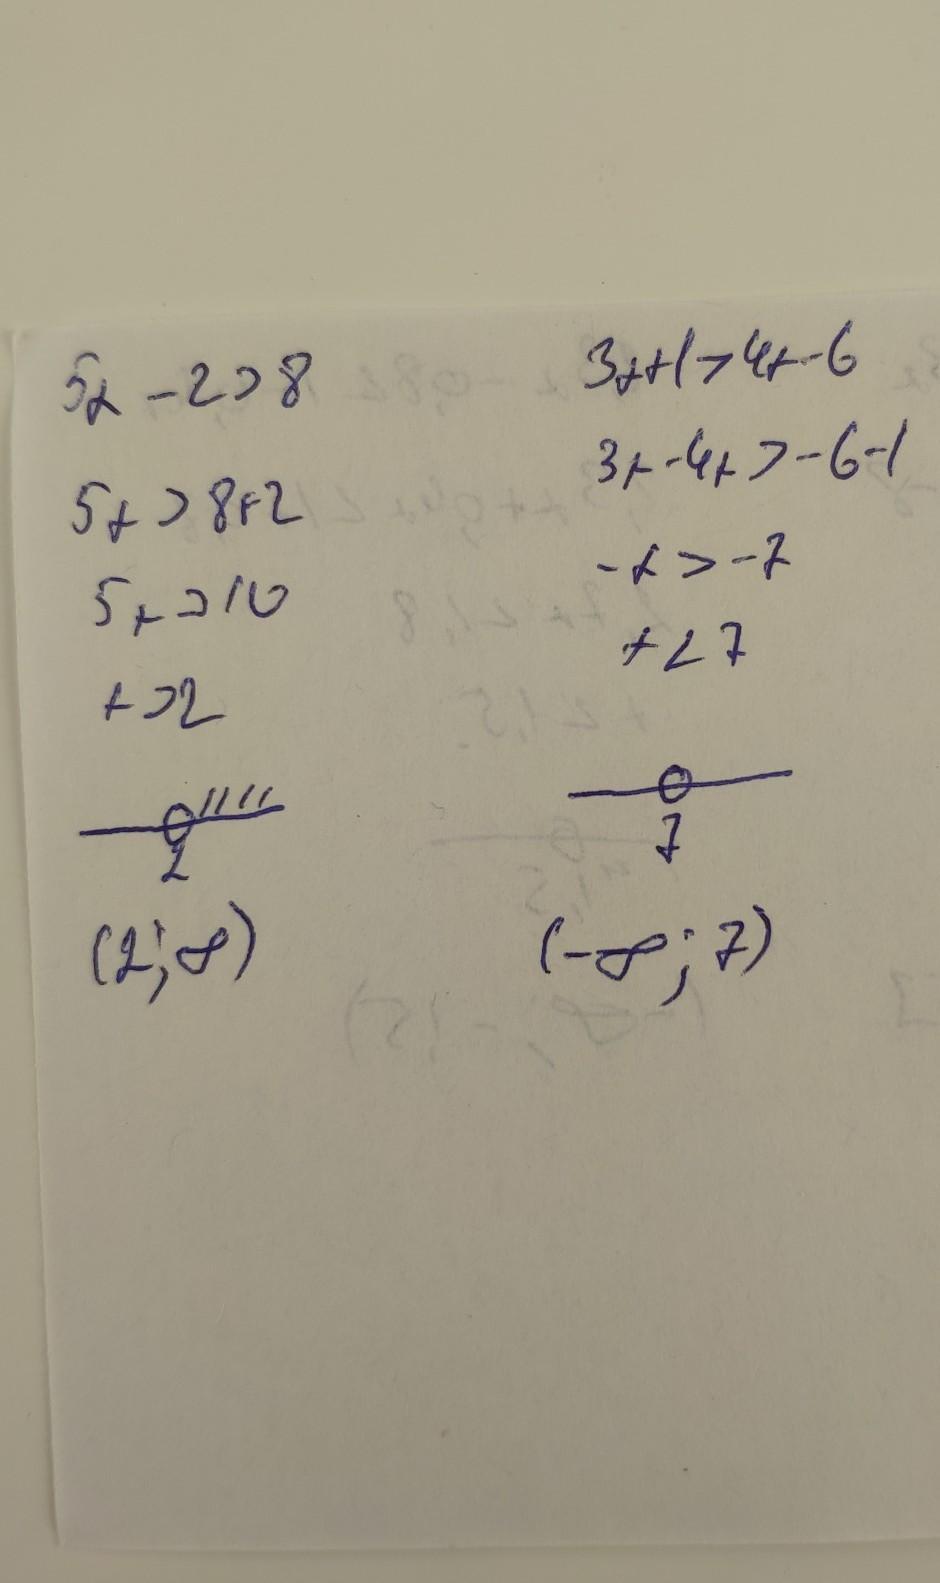 5x - 2 > 8
5x > 8 + 2
5x > 10
x > 2
2
(2; ∞)
3x + 1 > 4x - 6
3x - 4x > -6 - 1
-x > -7
x < 7
7
(-∞; 7)